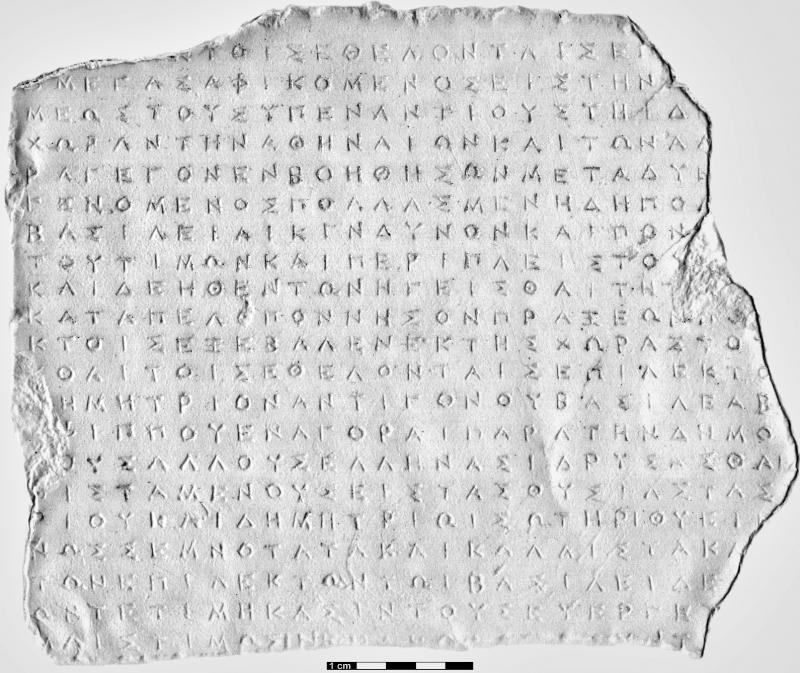 ΤΟΙΣΕΘΕΛΟΝΤΑΙΣΕΠ
ΜΕΓΑΣΑΦΙΚΟΜΕΝΟΣΕΙΣΤΗΝ
ΜΕΩΣΤΟΥΣΥΠΕΝΑΝΤΙΟΥΣΤΗΙΔ
ΧΩΡΑΝΤΗΝΑΘΗΝΑΙΩΝΚΑΙΤΩΝΑΛ
ΡΑΓΕΓΟΝΕΝΒΟΗΘΗΣΩΝΜΕΤΑΔΥ
ΓΕΝΟΜΕΝΟΣΠΟΛΛΑΣΜΕΝΗΔΗΠΟ
ΒΑΣΙΛΕΙΑΙΚΙΝΔΥΝΩΝΚΑΙΠΟΝ
ΤΟΥΤΙΜΩΝΚΑΙΠΕΡΙΠΛΕΙΣΤΟ
ΚΑΙΔΕΗΘΕΝΤΩΝΗΓΕΙΣΘΑΙΤΗ
ΚΑΤΑΠΕΛΟΠΟΝΝΗΣΟΝΠΡΑΞΕΩΝΠΟ
ΚΤΟΙΣΕΞΕΒΑΛΕΝΕΚΤΗΣΧΩΡΑΣΤΟ
ΘΑΙΤΟΙΣΕΘΕΛΟΝΤΑΙΣΕΠΙΛΕΚΤΟ
ΗΜΗΤΡΙΟΝΑΝΤΙΓΟΝΟΥΒΑΣΙΛΕΑΒ
ΙΠΠΟΥΕΝΑΓΟΡΑΙΠΑΡΑΤΗΝΔΗΜΟ
ΟΥΣΑΛΛΟΥΣΕΛΛΗΝΑΣΙΔΡΥΣΑΣΘΑΙ
ΙΣΤΑΜΕΝΟΥΣΕΙΣΤΑΣΘΥΣΙΑΣΤΑΣ
ΙΟΥΚΑΙΔΗΜΗΤΡΙΩΙΣΩΤΗΡΙΘΥΕΙ
ΝΩΣΣΕΜΝΟΤΑΤΑΚΑΙΚΑΛΛΙΣΤΑΚ
ΤΩΝΕΠΙΛΕΚΤΩΝΤΩΙΒΑΣΙΛΕΙΔΕ
ΩΝΤΕΤΙΜΗΚΑΣΙΝΤΟΥΣΕΥΕΡΓΕ
ΑΙΣΤΙΜΩΣΙΝ
1 cm